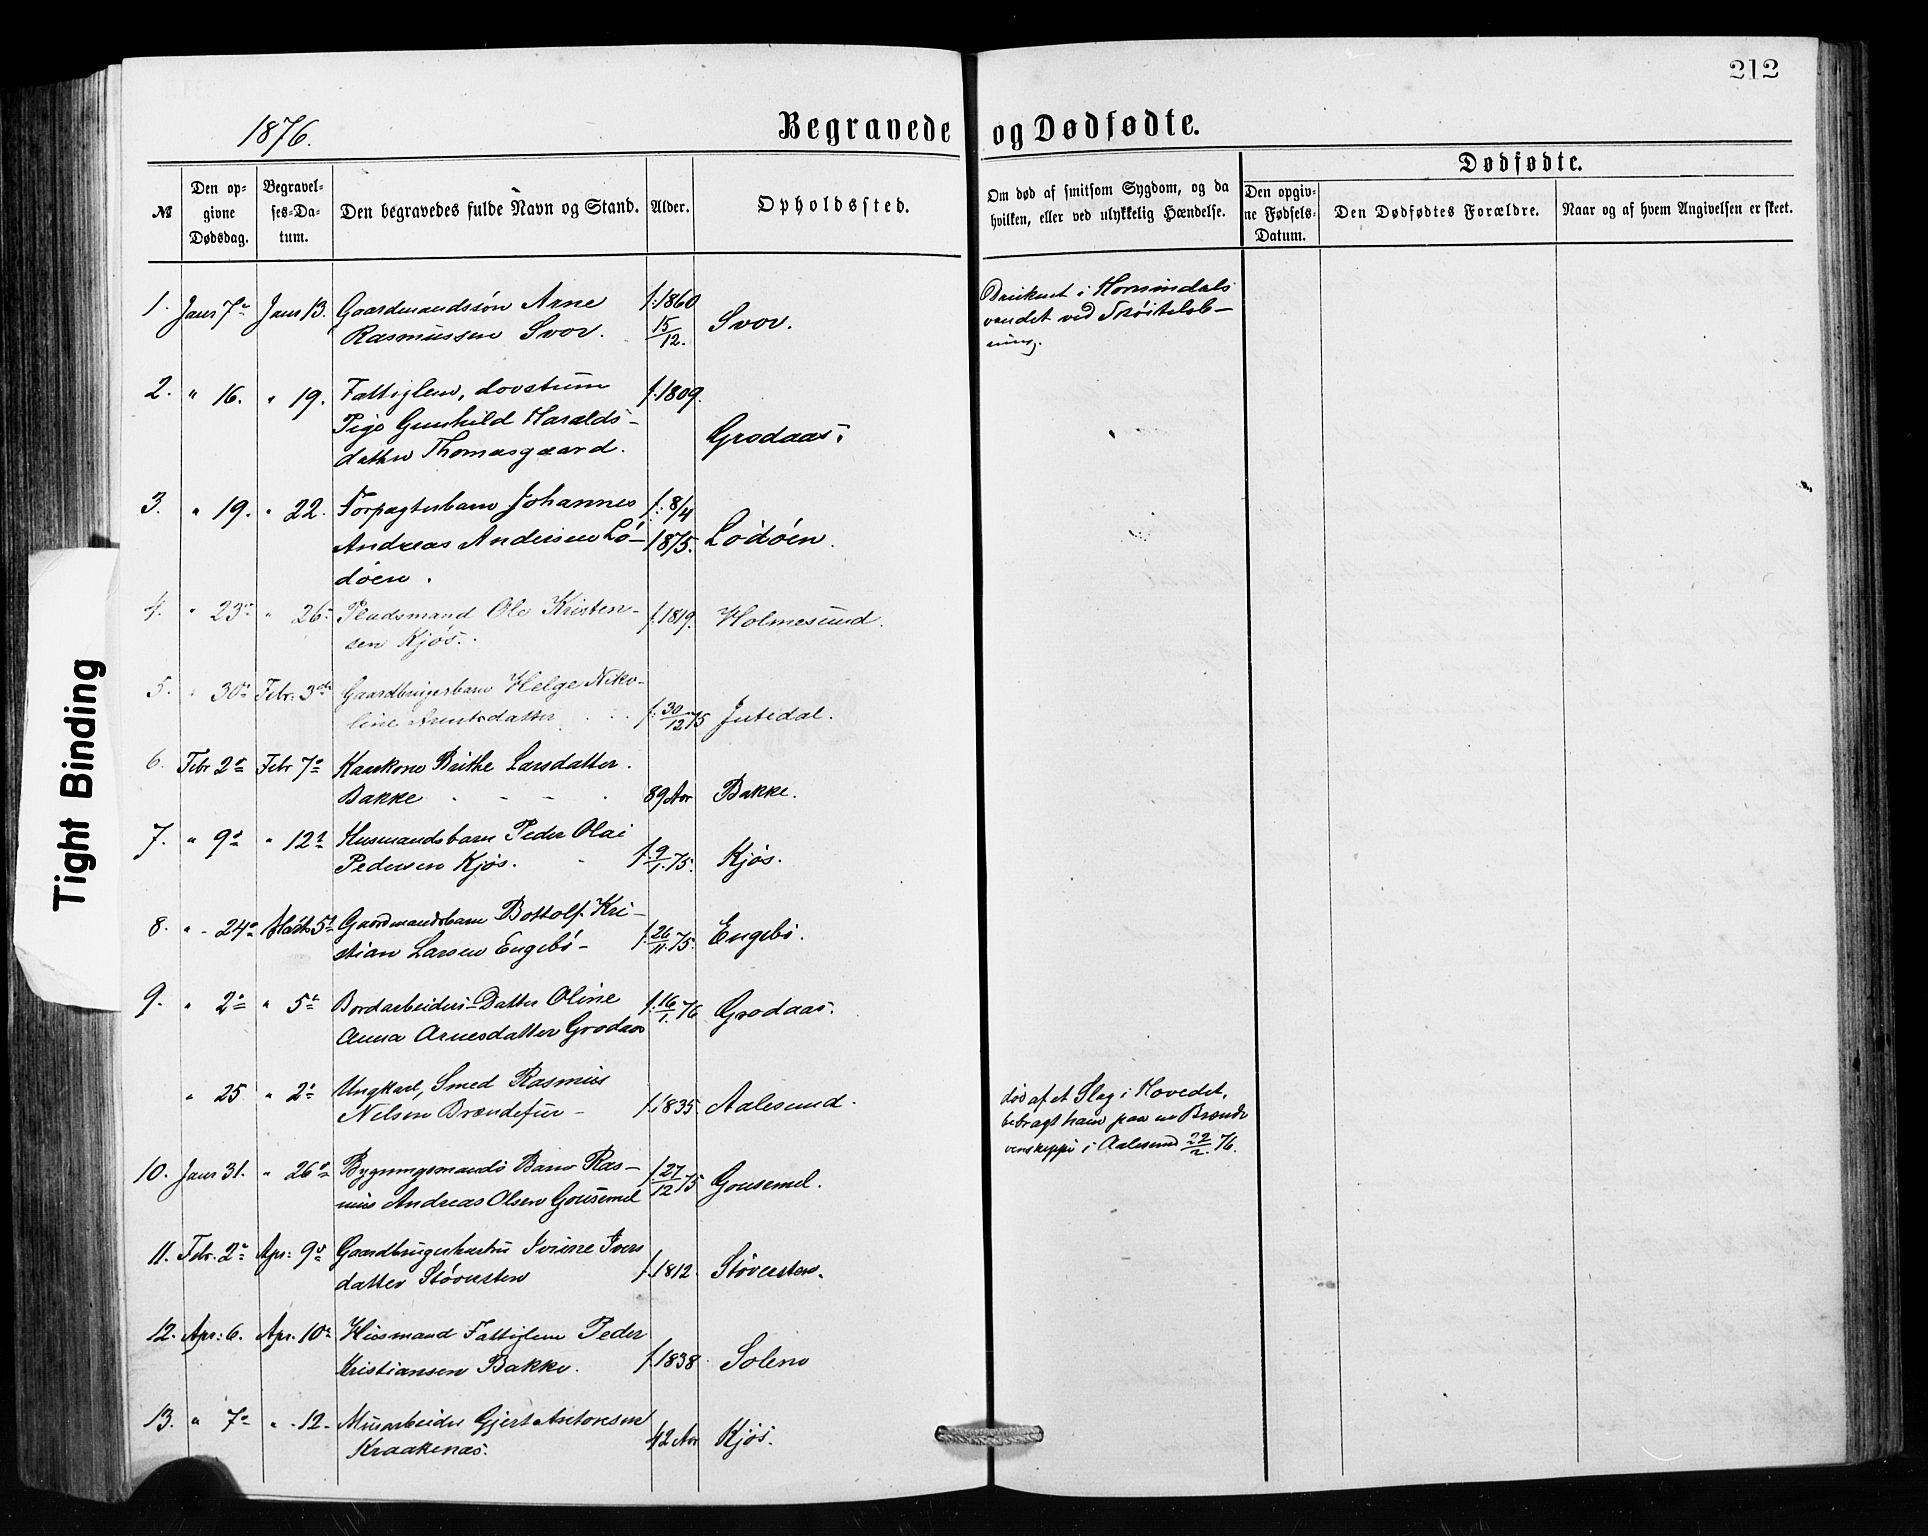 212
1876.
Begravede og Dødfødte.
Dødfødte.
№
Den op-
givne
Dødsdag.
Begravel-
ses-Da-
tum.
Den begravedes fulde Navn og Stand.
Alder.
Opholdssted.
Om død af smitsom Sygdom, og da
hvilken, eller ved ulykkelig Hændelse.
Den opgiv-
ne Fødsels-
Datum.
Den Dødfødtes Forældre.
Naar og af hvem Angivelsen er skeet.
1. Janr 7de Janr 13. Gaardmandssøn Arne f. 1860
Rasmussen Svor. 15/12. Svor.
Druknet i Hornindals
vandet ved
ning.
2. " 16. " 19. Fattiglem, døvstum f. 1809.
Pige Gunhild Haralds-
datter Thomasgaard. Grodaas.
3. " 19. " 22. Forpagterbarn Johannes f. 8/4
Andreas Andersen Lö- 1875. Lödöen.
döen.
4. " 23de " 26. Pladsmand Ole Kristen- f. 1819. Holmesund.
sen Kjøs.
5. " 30de Febr. 3die Gaardbrugerbarn Helge Niko-
line Arntsdatter f. 30/12 75 Jutedal.
6. Febr 2den Febr 7de Kaarkone Brithe Larsdatter.
Bakke 89 Aar Bakke.
7. " 9de " 12te Husmandsbarn Peder Olai
Pedersen Kjøs. f. 9/1. 75. Kjøs.
8. " 24de Marts 5te Gaardmandsbarn Bottolf Kri-
stian Larsen Engebö- f. 26/11. 75. Engebö.
9. " 2den " 5te Bordarbeiders-Datter Oline f. 16/1. 76 Grodaas.
Anna Arnesdatter Grodaas
" 25 " 2den Ungkarl, Smed Rasmus
Nelsen Brændefur - f. 1835 Aalesund.
død af et Slag i Hovedet,
bebragt ham paa en Brænde
i Aalesund 22/2. 76.
10. Janr 31. " 26de Bygningsmands Barn Ras- f. 27/12 75 Gousemel.
mus Andreas Olsen Gousemel
11. Febr. 2den Apr: 9de Gaardbrugerhustru Ivers
datter Störesten f. 1812. Störesten.
12. Apr: 6. Apr. 10de Husmand Fattiglem Peder
Kristiansen Bakke. f. 1838. Solem
13. " 7de " 12. Murarbeider Gjert Antonsen
Kraakenæs. 42 Aar Kjøs.
Tight Binding